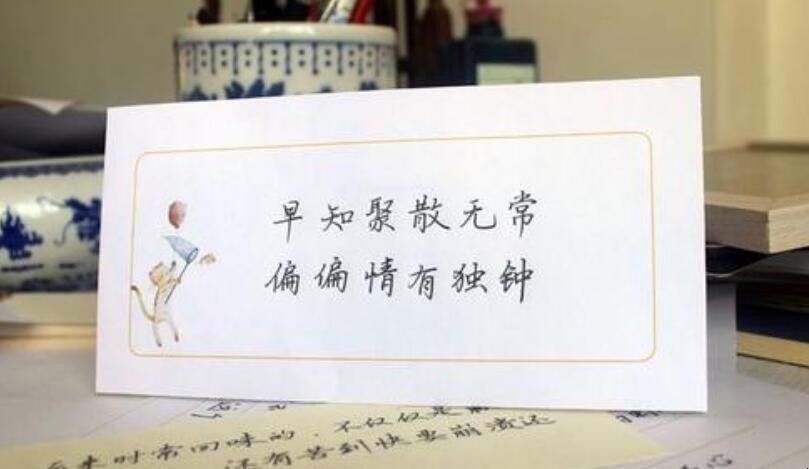 早知聚散无常
偏偏情有独钟
来时常回味的，不仅仅是
还有苦到快要崩溃还